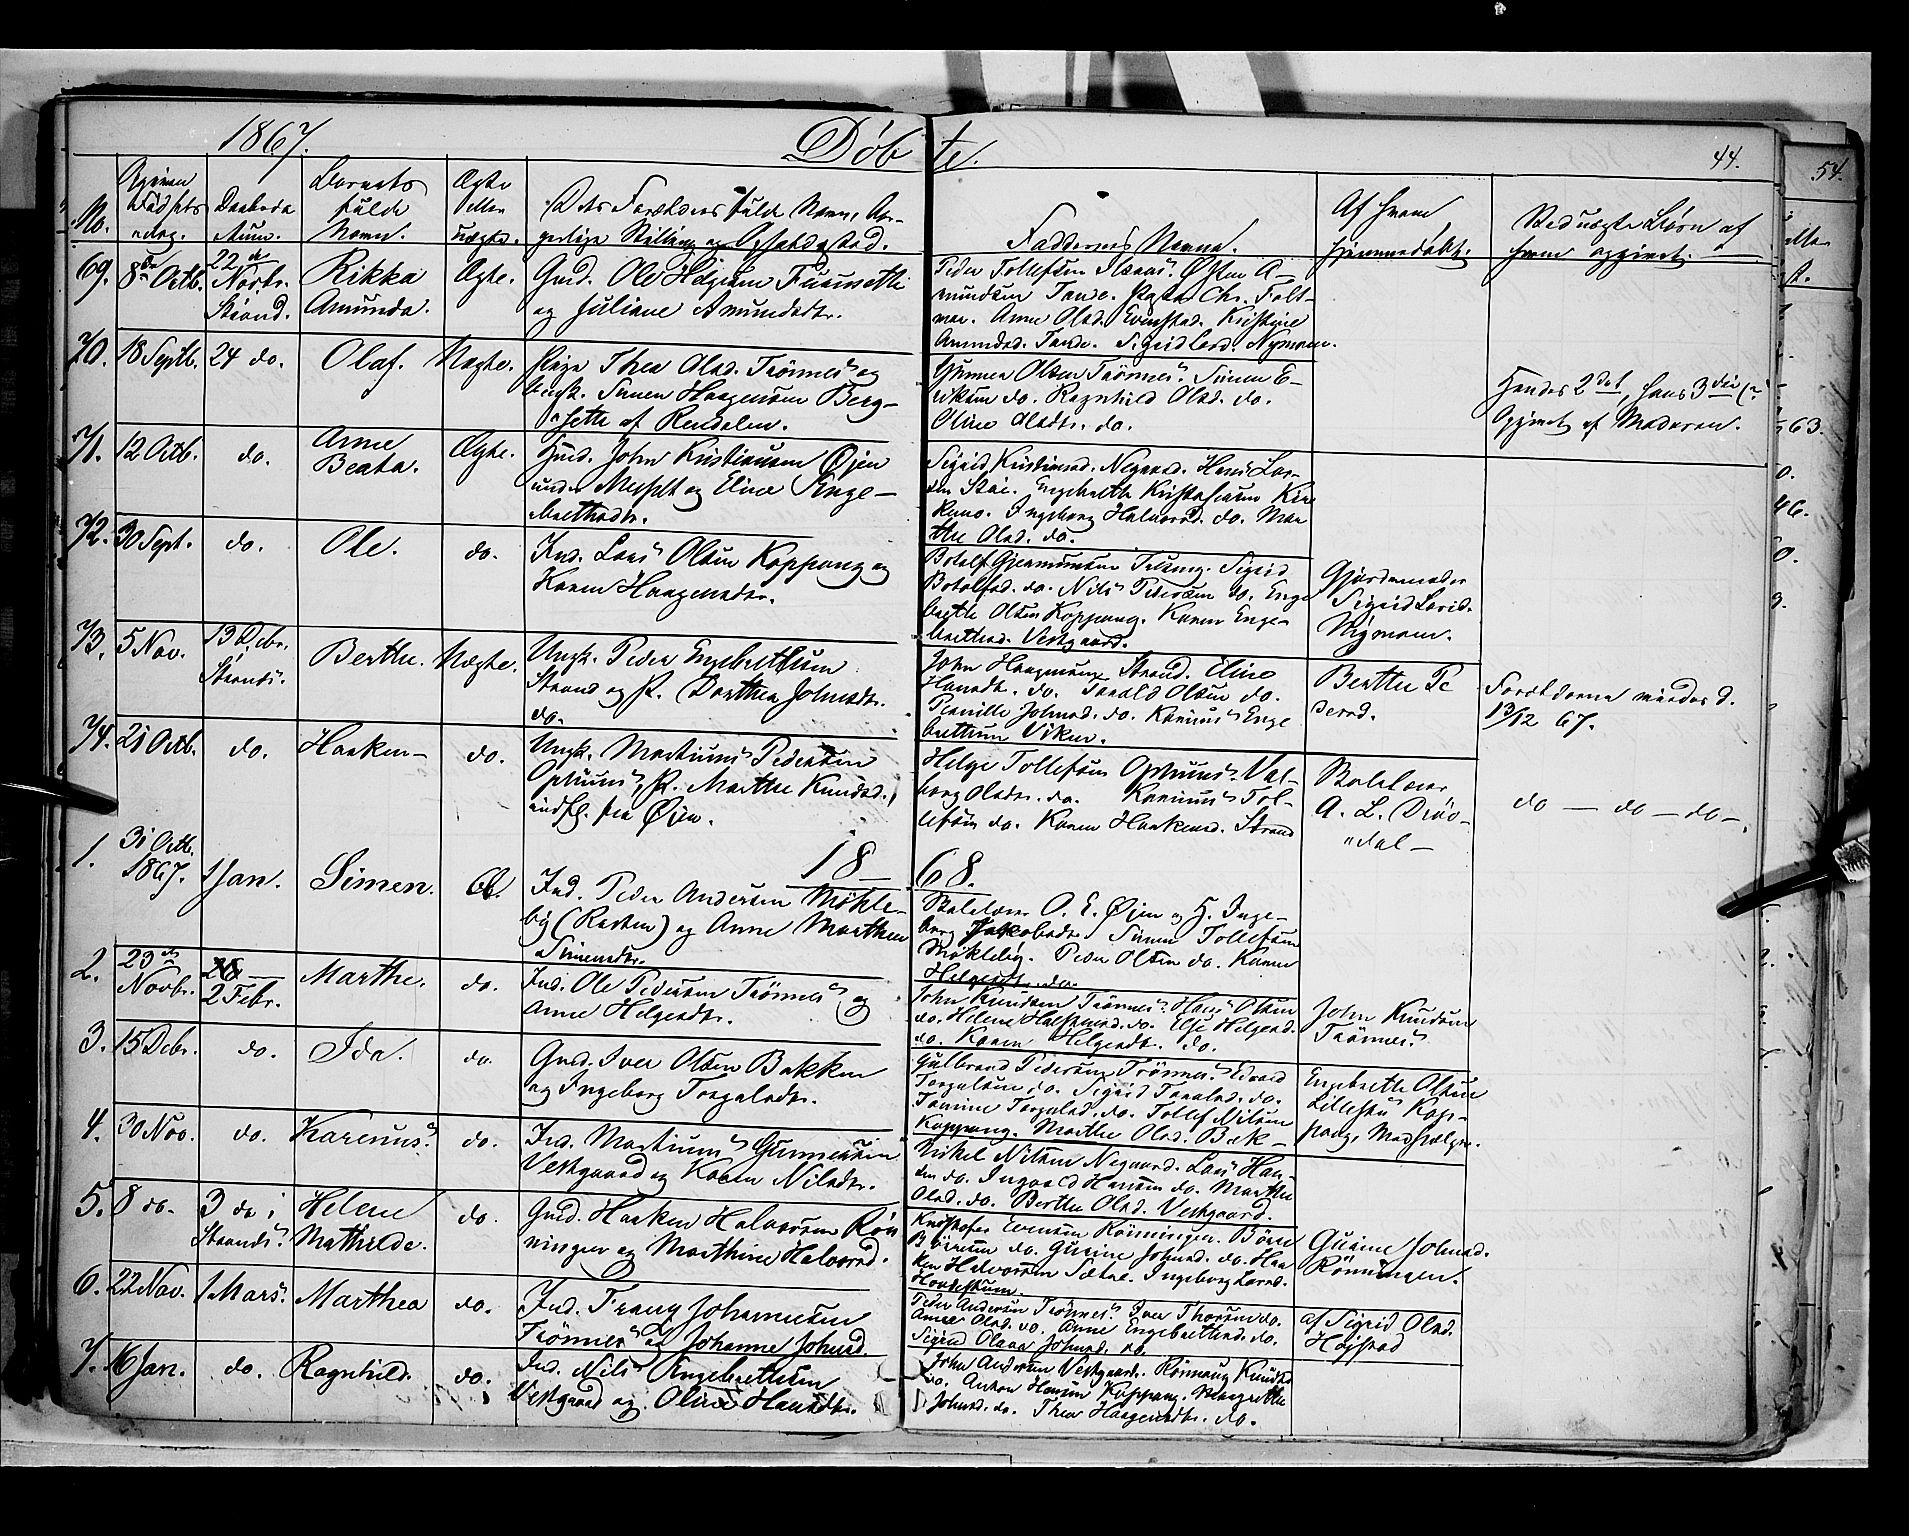 1867.
Døbte.
44.
54.
No.
Daabsda-
tum.
Barnets
fulde
Navn.
Ægte
eller
uægte.
Dets Forældres fulde Navn, Bor-
gerlige Stilling og Opholdssted.
Faddernes Navne.
Af hvem
hjemmedøbt.
Ved uægte Børn af
hvem opgivet.
69.
8de Octb.
22de
Novbr.
Strand.
Rikka
Amunda.
Ægte.
Gmd. Ole Helgesen
og Juliane Amundsdtr.
Peder Tollefsen
mundsen Tande. Chr. Folt-
mar. Anne Olsd. Evenstad. Kristine
Amundsd. Tande. Sigrid Larsd. Nymoen.
70.
18 Septb.
24 do.
Olaf.
Uægte.
Pige Thea Olsd. Trönnes og
Ungk. Simen Haagensen Berg-
sette af Rendalen.
Gunner Olsen Trönnes. Simen E-
riksen do. Ragnhild Olsd. do.
Oline Olsdtr. do.
Hendes 2det, hans 3die (?)
Opgivet af Moderen.
71.
12 Octb.
do.
Anne
Beata.
Ægte.
Gmd. John Kristiansen Øien
under Messelt og Eline Enge-
bretsdtr.
Sigrid Kristiansd. Negaard. Hans Lar-
sen Stai. Engebrethe Kristofersen Kir-
keno. Ingeborg Halvorsd. do. Mar-
the Olsd. do.
72.
30 Sept.
do.
Ole.
do.
Ind. Lars Olsen Koppang og
Karen Haagensdtr.
Botolf Gjermunsen Sigrid
Botolfsd. do. Nils Pedersen do. Enge
brethe Olsen Koppang. Karen Enge-
brethsd. Vestgaard.
Gjordemoder
Sigrid Larsd.
Nymoen.
73.
5 Nov.
13 Decbr.
Strand.
Berthe.
Uægte.
Ungk. Peder Engebrethsen
Strand og P. Dorthea Johnsdtr.
do.
John Haagensen Strand. Eline
Hansdt. do. Tarald Olsen do.
Pernille Johnsd. do. Karinus Enge
brethsen Viken.
Berthe Pe
dersd.
Forældrene viedes d.
13/12 67.
74.
21 Octb.
do.
Haaken
do.
Ungk. Martinus Pedersen
Ophuus, P. Marthe Knudsd.,
indfl. fra Øien.
Helge Tollefsen Ophuus. Val-
borg Olsdtr. do. Karinus Tol-
lefsen do. Karen Haakensd. Strand
Skolelærer
A. L. Dröv-
dal
do — do — do —.
1868.
1.
31 Octb.
1867.
1 Jan.
Simen.
Æ.
Ind. Peder Andersen Møkle-
by (Rasten) og Anne Marthea
Simensdtr.
Skolelærer O. E. Øien og H. Inge-
borg Jakobsdtr. Simen Tollefsen
Møkleby. Peder Olsen do. Karen
Helgesdt. do.
2.
23de
Novbr.
2 Febr.
Marthe.
do.
Ind. Ole Pedersen Trönnes og
Anne Helgesdtr.
John Knudsen Trönnes. Hans Olsen
do. Helene Halstensd. do. Else Helgesd.
do. Karen Helgesdt. do.
John Knudsen
Trönnes.
3.
15 Debr.
do.
Ida.
do.
Gmd. Iver Olsen Bakken
og Ingeborg Torgalsdtr.
Gulbrand Pedersen Trönnes. Edvard
Torgalsen do. Sigrid Taralsd. do.
Tomine Torgalsd. do. Tollef Nilsen
Koppang. Marthe Olsd. Bak-
Engebrethe Olsen
Lillestu Kop-
pang, Medhjælper.
4.
30 Nov.
do.
Karinus.
do.
Ind. Martinus Gunnersen
Vestgaard og Karen Nilsdtr.
Mikel Nilsen Negaard. Lars Han-
sen do. Ingvald Hansen do. Marthe
Olsd. do. Berthe Olsd. Vestgaard.
5.
8 do.
3 do i
Strands.
Helene
Mathilde.
do.
Gmd. Haaken Halvorsen Rön
ningen og Marthine Halvorsd.
Kristofer Evensen Rönningen. Börre
Börresen do. Gurine Johnsd. do. Haa
ken Halvorsen Sætre. Ingeborg Larsd.
Hovdestuen.
Gurine Johnsd.
Rönningen.
6.
22 Nov.
1 Mars.
Marthea
do.
Ind. Frans Johannesen
Trönnes og Johanne Johnsd.
Peder Andersen Trönnes. Iver Thorsen do.
Anne Olsd. do. Anne Engebrethsd. do.
Sigrid Olava Johnsd. do.
af Sigrid Olsd.
Høistad
7.
16 Jan.
do.
Ragnhild.
do.
Ind. Nils Engebrethsen
Vestgaard og Oline Hansdtr.
John Andersen Vestgaard. Rönnaug Knudsd
do. Anton Hansen Koppang. Margrethe
Johnsd. do. Thea Haagensdtr. do.